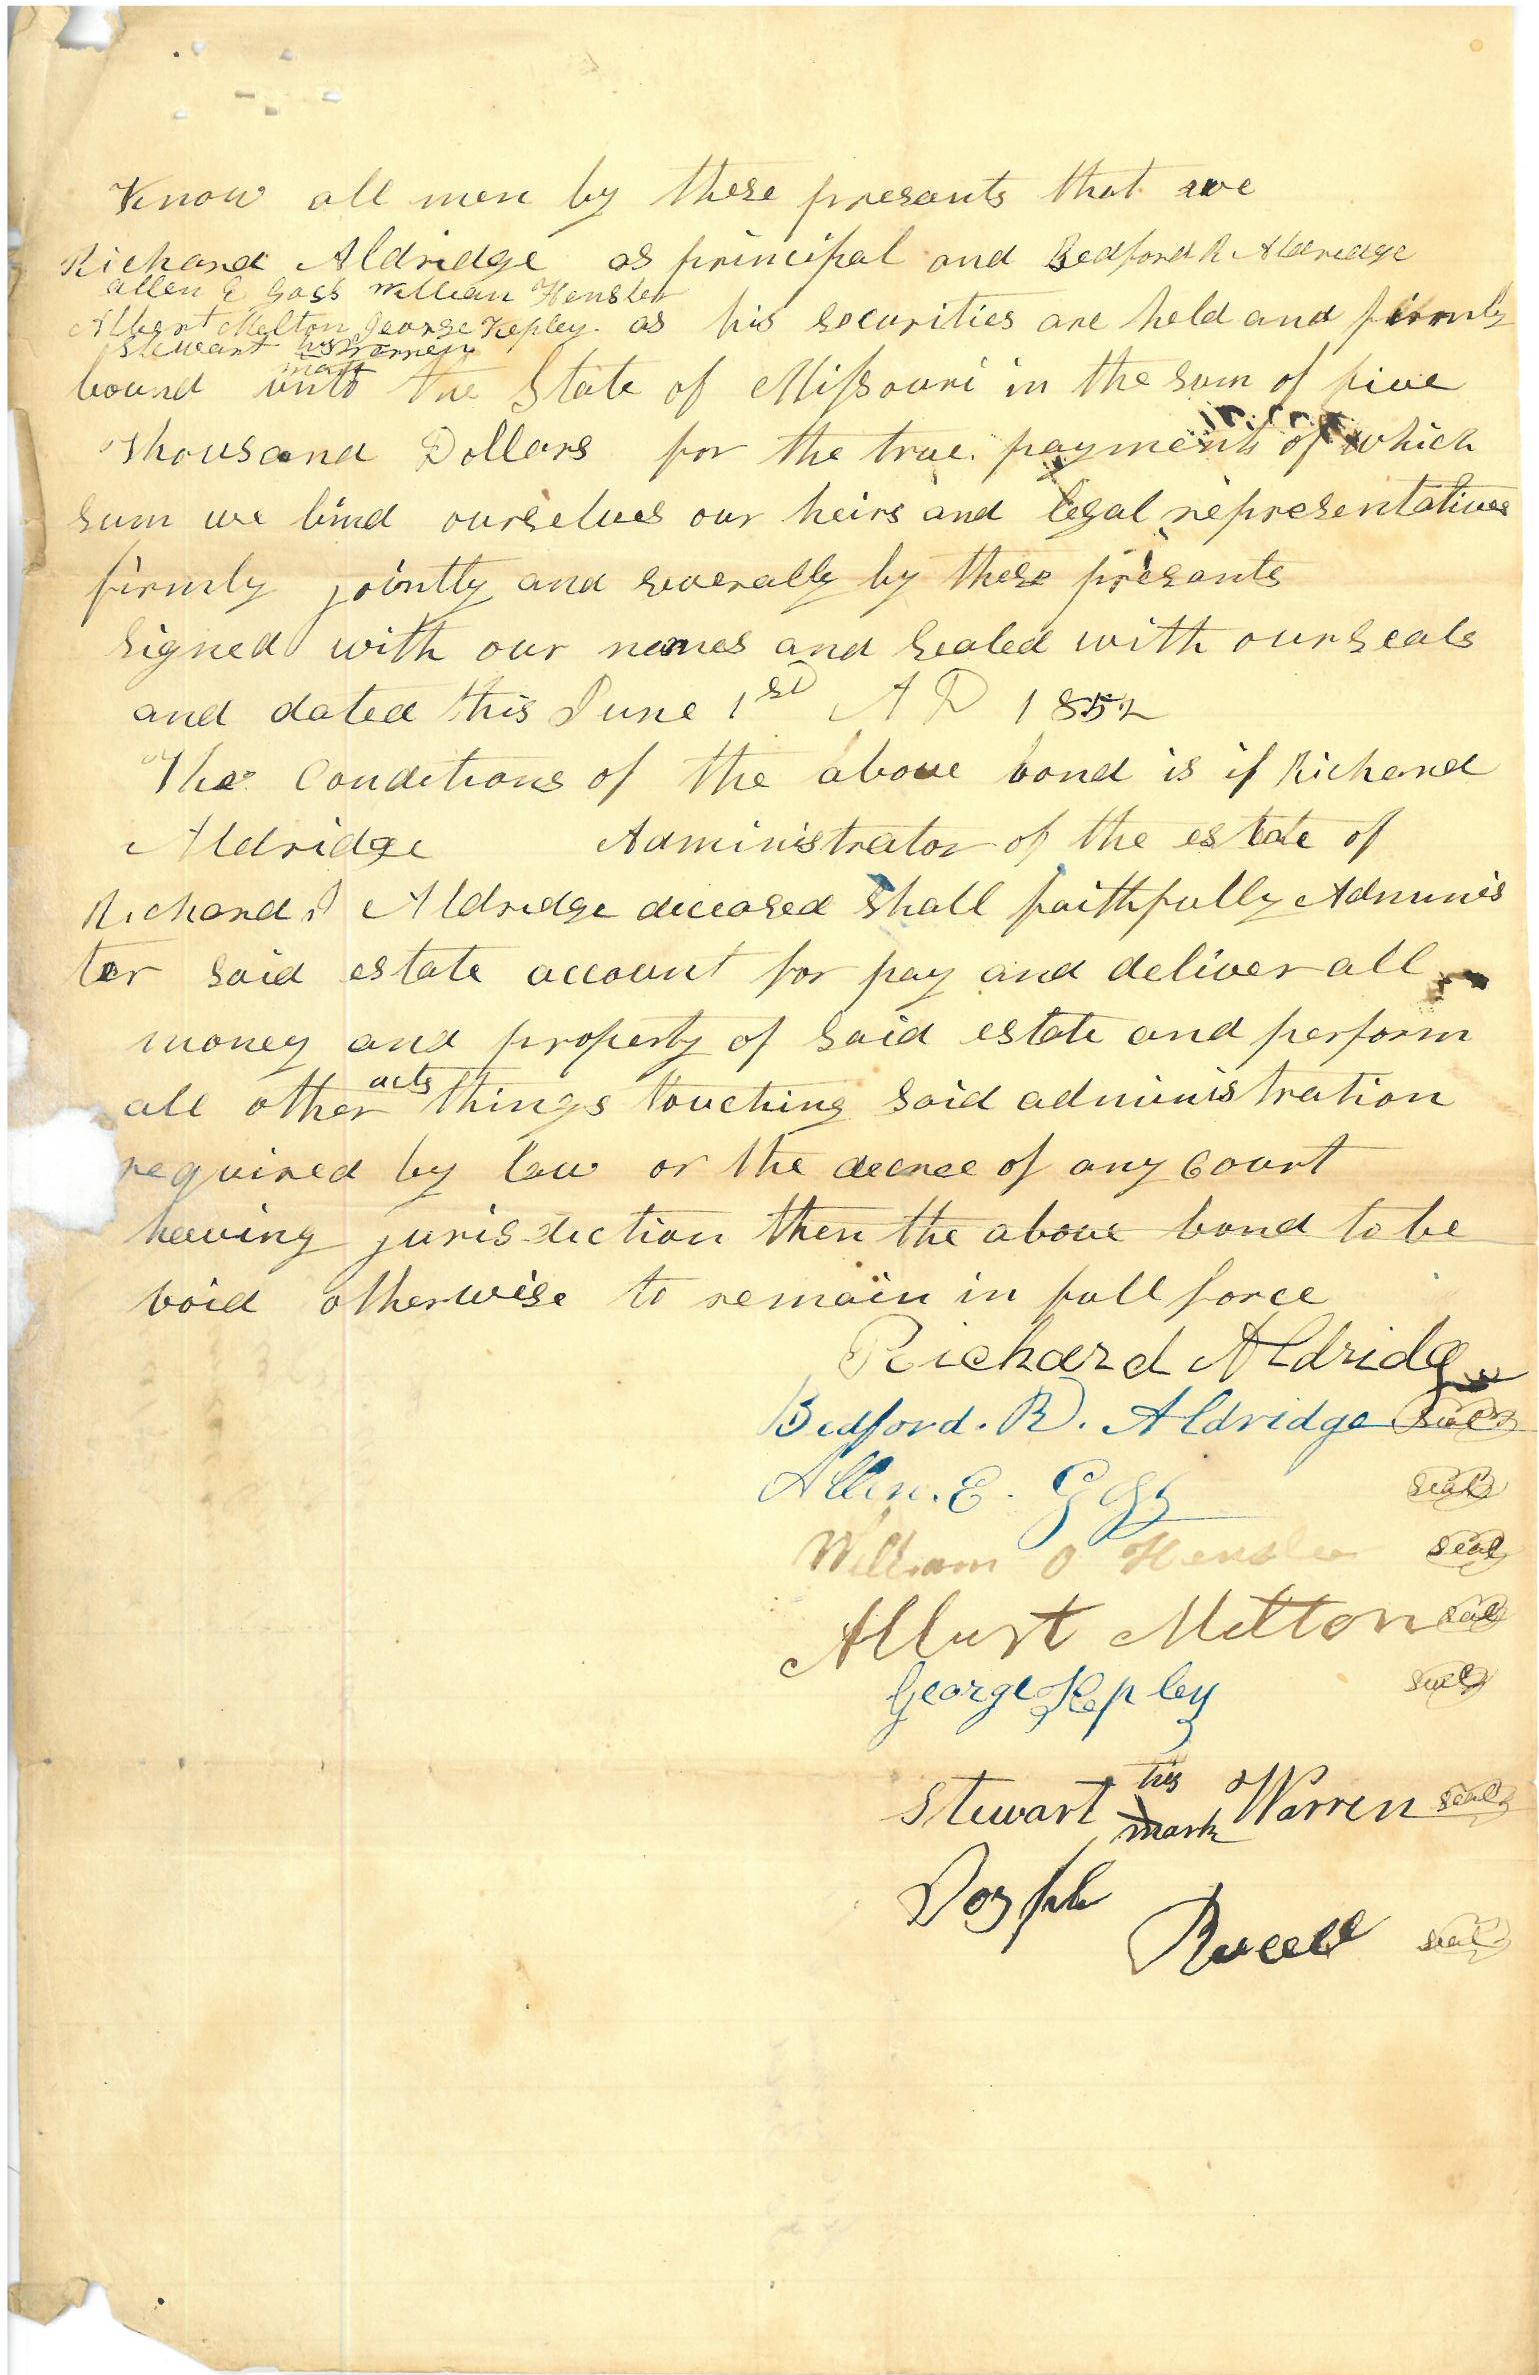 Know all men by these presants that we
Richard Aldridge as principal and Bedford R Aldridge
Allen E Goss William Henslee
Albert Melton George Kepley as his securities are held and firmly
Stewart his Warren
mark
bound unto the State of Missouri in the sum of five
Thousand Dollars for the true payment of which
sum we bind ourselves our heirs and legal representatives
firmly jointly and severally by these presants
signed with our names and sealed with our seals
and dated this June 1st A D 1852
The Conditions of the above bond is if Richard
Aldridge Administrator of the estate of
Richard Aldridge deceased shall faithfully Adminis
ter said estate account for pay and deliver all
money and property of said estate and perform
acts
all other things touching said administration
required by law or the decree of any Court
having jurisdiction then the above bond to be
void otherwise to remain in full force
Richard Aldridge
Bedford. R. Aldridge seal
Allen. E. Goss seal
William O Henslee seal
Alburt Melton seal
George Kepley seal
his
Stewart Warren seal
mark
Joseph
seal